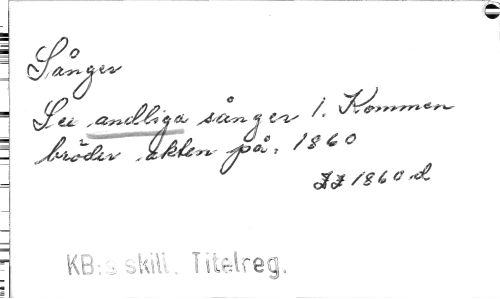 Sånger
Sex andliga sånger 1. Kommen
bröder akten på. 1860
ZZ 1860 d
KB:s skill. Titelreg.